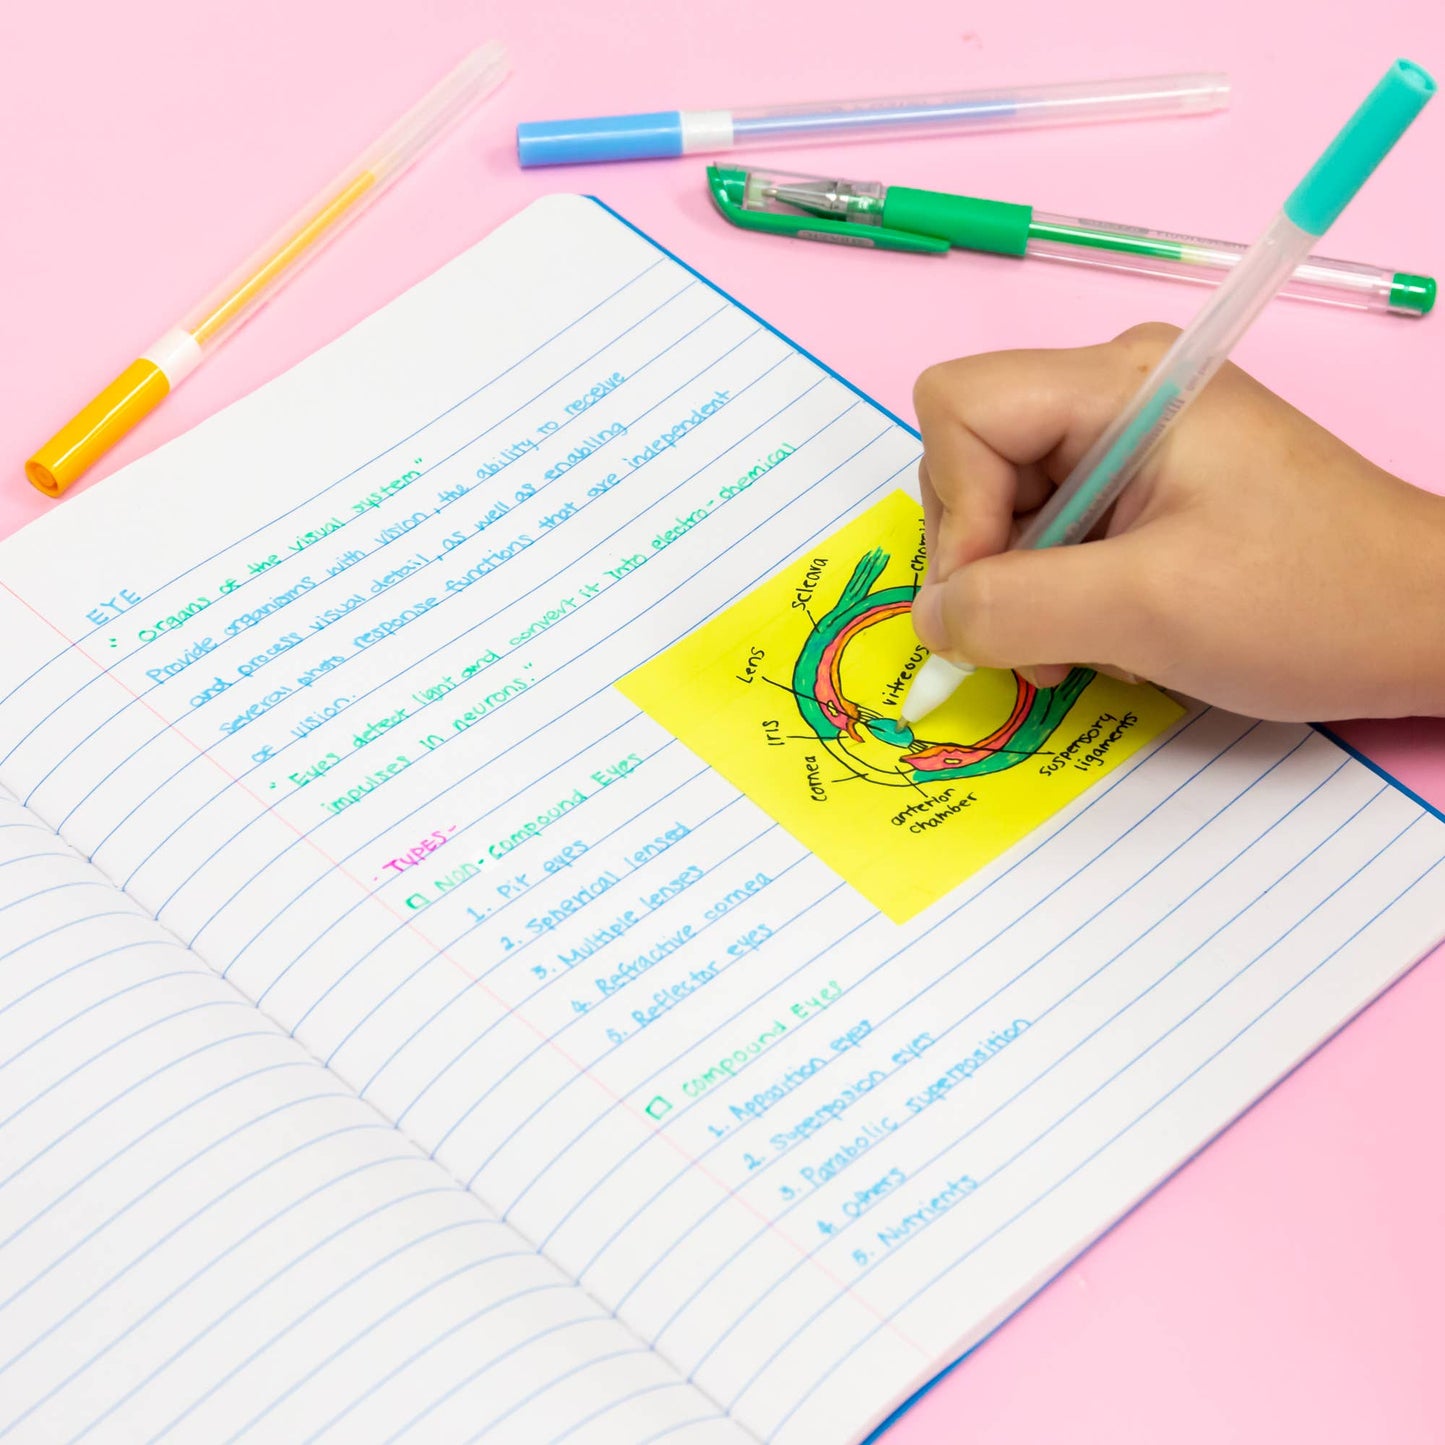 EYE
" Organs of the visual system"
Provide organisms with vision, the ability to receive
and process visual detail, as well as enabling
several photo response functions that are independent
of vision.
" Eyes detect light and convert it into electro-chemical
impulses in neurons."
- TYPES-
Non-Compound Eyes
1. Pit eyes
2. Spherical lensed
3. Multiple lenses
4. Refractive cornea
5. Reflector eyes
Compound Eyes
1. Apposition eyes
2. Superposion eyes
3. Parabolic superposition
4. Others
5. Nutrients
Scleara
choroid
Lens
vitreous
Iris
cornea
suspensory
ligaments
anterior
chamber